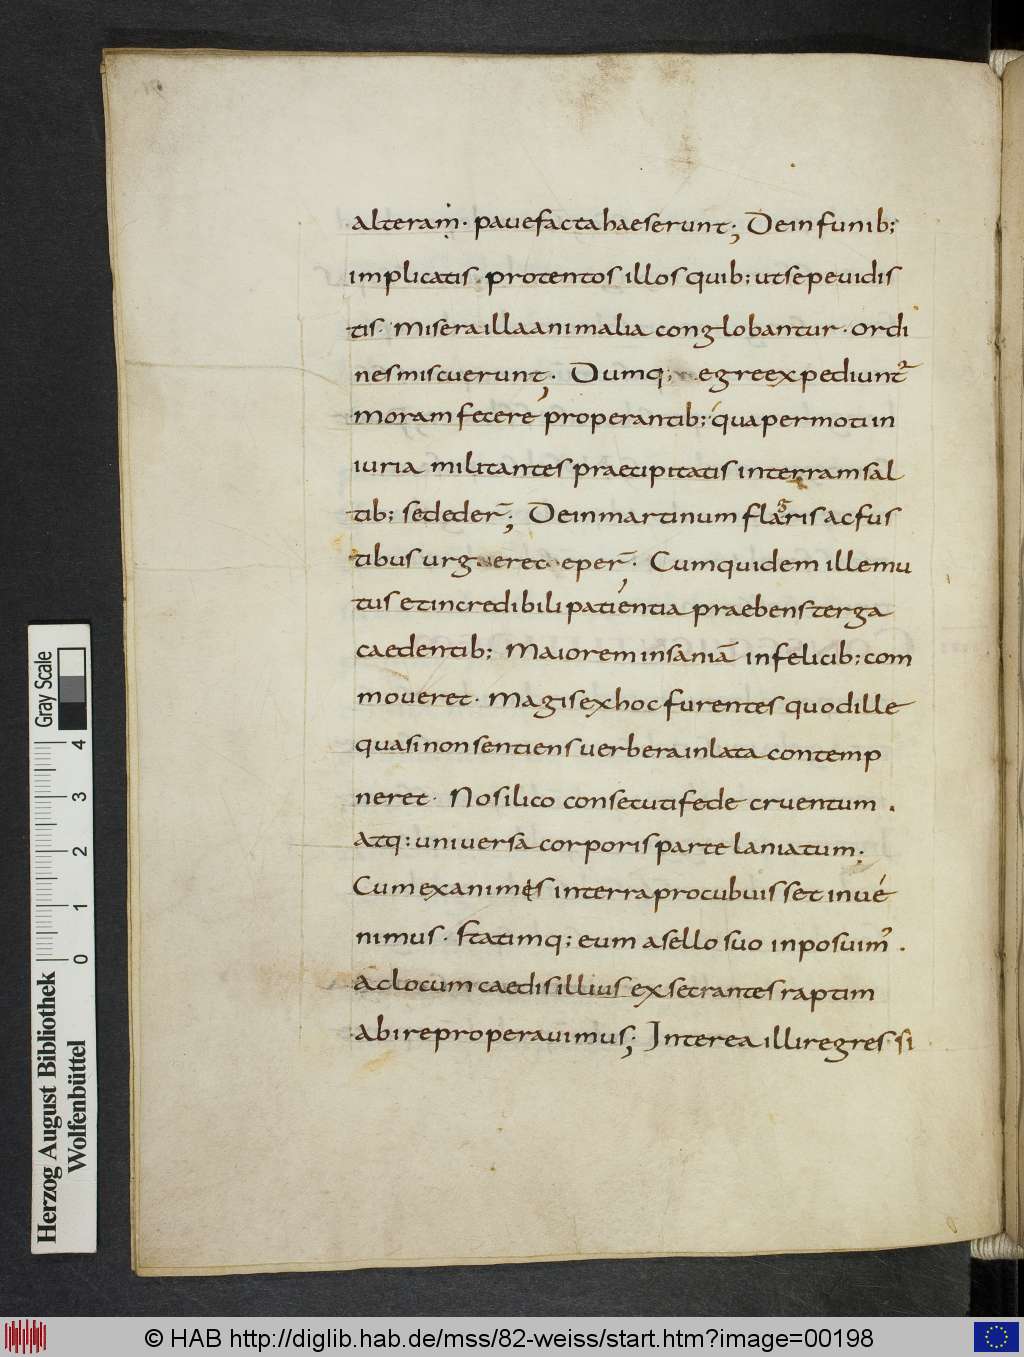 alteraṁ. pauefacta haeserunt; Dein funib;
implicatis. protentos illos quib; ut sepe uidis
tis. Misera illa animalia conglobantur. ordi
nes miscuerunt; Dumq; egre expediunt᷑
moram fecere properantib; qua permoti in
iuria militantes praecipitatis in terram sal
tib; se deder̄; Dein martinum flagris ac fus
tibus urg erec eper̄. Cum quidem ille mu
tus et incredibili patientia praebens terga
caedentib; Maiorem insaniā infelicib; com
moueret. Magis ex hoc furentes quod ille
quasi non sentiens uerbera inlata contemp
neret. Nos ilico consecuti fede cruentum.
atq; uniuersa corporis parte laniatum;
Cum exanimes in terra procubuisset inue
nimus. statimq; eum asello suo inposuim᾽.
Ac locum caedis illius exsecrantes raptim
abire properauimus; Interea illi regressi
Herzog August Bibliothek
Wolfenbüttel
0 1 2 3 4
Gray Scale
© HAB http://diglib.hab.de/mss/82-weiss/start.htm?image=00198